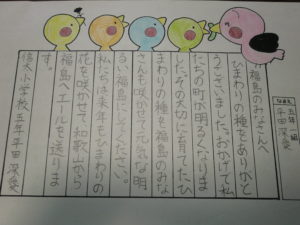 福島のみなさんへ
ひまわりの種をありがと
うございました。おかげで私
たちの町が明るくなりま
した。その大切に育てたひ
まわりの種を福島のみな
さんも咲かせて元気な明
るい福島にしてください。
私たちは来年もひまわりの
花を咲かせて、和歌山から
福島へエールを送りま
す。
小学校 五年 平田深愛
五年 組
平田深愛